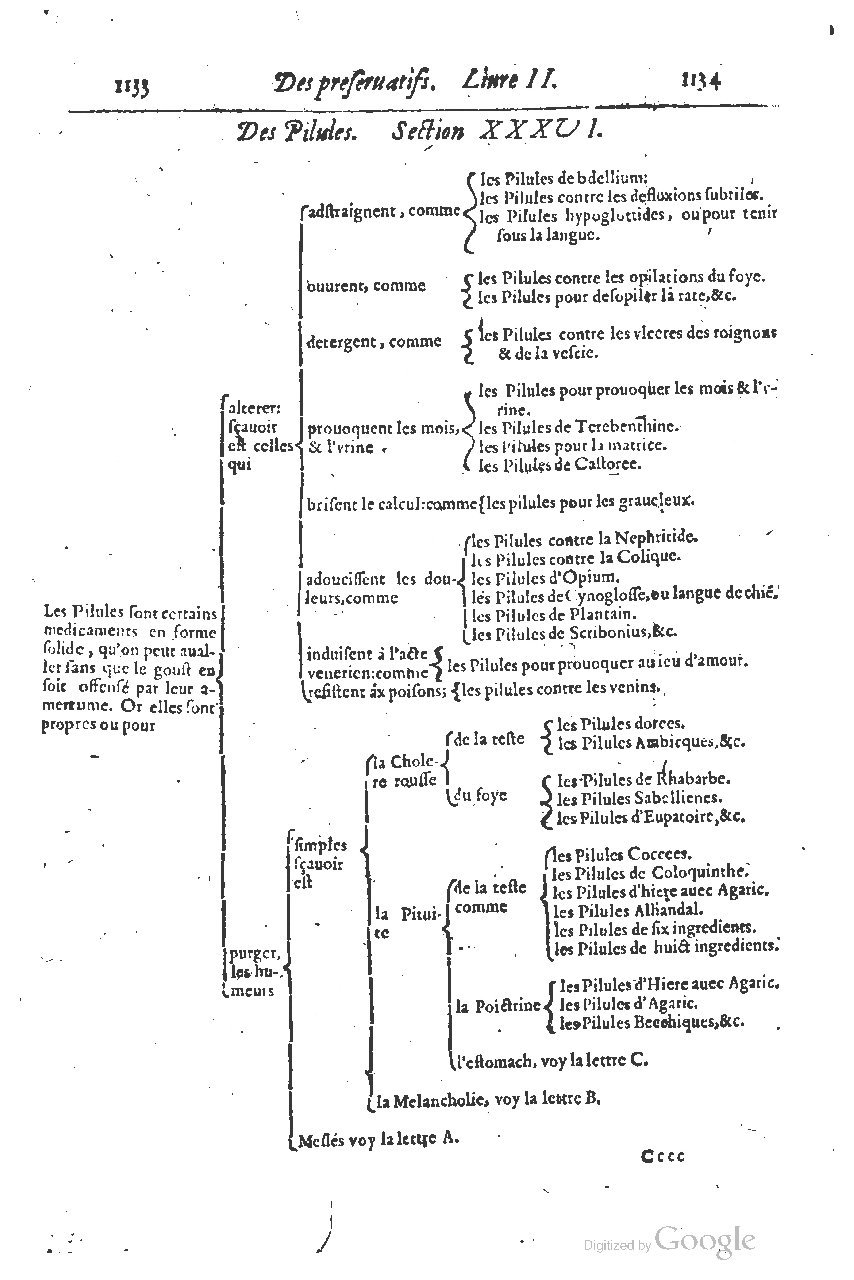 1133 Des preseruatifs. Liure II. 1134
Des Pilules. Section XXXVI.
Les Pilules sont certains
medicamens en forme
solide, qu'on peut aual-
ler sans que le goust en
soit offensé par leur a-
mertume. Or elles sont
propres ou pour
alterer:
sçauoir
est celles
qui
adstraignent, comme
les Pilules de bdellium:
les Pilules contre les defluxions subtiles.
les Pilules hypoglottides, ou pour tenir
sous la langue.
ouurent, comme
les Pilules contre les opilations du foye.
les Pilules pour desopiler la rate, &c.
detergent, comme
les Pilules contre les vlceres des roignons
& de la vescie.
prouoquent les mois,
& l'vrine
les Pilules pour prouoquer les mois & l'v-
rine.
les Pilules de Terebenthine.
les Pilules pour la matrice.
les Pilules de Castoree.
brisent le calcul: comme les pilules pour les graueleux.
adoucissent les dou-
leurs, comme
les Pilules contre la Nephritide.
les Pilules contre la Colique.
les Pilules d'Opium.
lés Pilules de Cynoglosse, ou langue de chié.
les Pilules de Plantain.
les Pilules de Scribonius, &c.
induisent à l'acte
venerien: comme
les Pilules pour prouoquer au ieu d'amour.
resistent áx poisons; les pilules contre les venins.
purger,
les hu-
meurs
simples
sçauoir
est
la Chole-
re rousse
de la teste
les Pilules dorees.
les Pilules Arabicques, &c.
du foye
les Pilules de Rhabarbe.
les Pilules Sabellienes.
les Pilules d'Eupatoire, &c.
la Pitui-
te
de la teste
comme
les Pilules Cocees.
les Pilules de Coloquinthe.
les Pilules d'hiere auec Agaric.
les Pilules Alhandal.
les Pilules de six ingredients.
les Pilules de huict ingredients.
la Poictrine
les Pilules d'Hiere auec Agaric.
les Pilules d'Agaric.
les Pilules Becchiques, &c.
l'estomach, voy la lettre C.
la Melancholie, voy la lettre B.
Meslés voy la lettre A.
Cccc
Digitized by Google